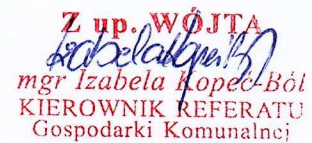 Z up. WÓJTA
mgr Izabela Kopeć-Ból
KIEROWNIK REFERATU
Gospodarki Komunalnej